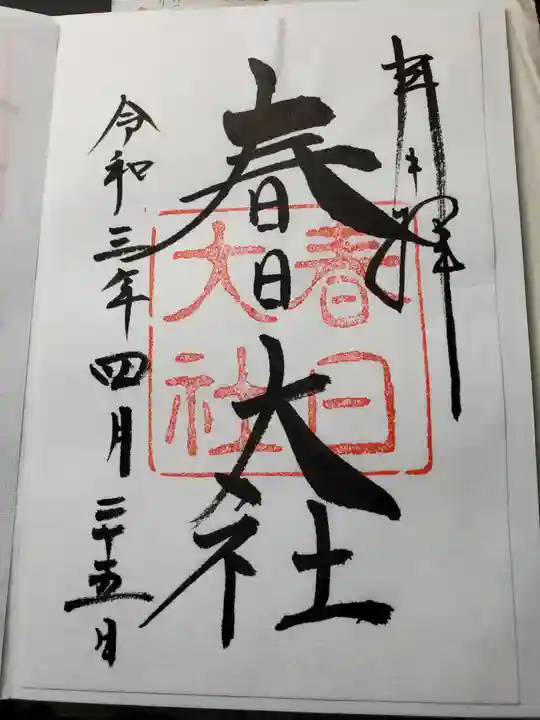 春日大社
令和三年四月二十五日
春日
大社